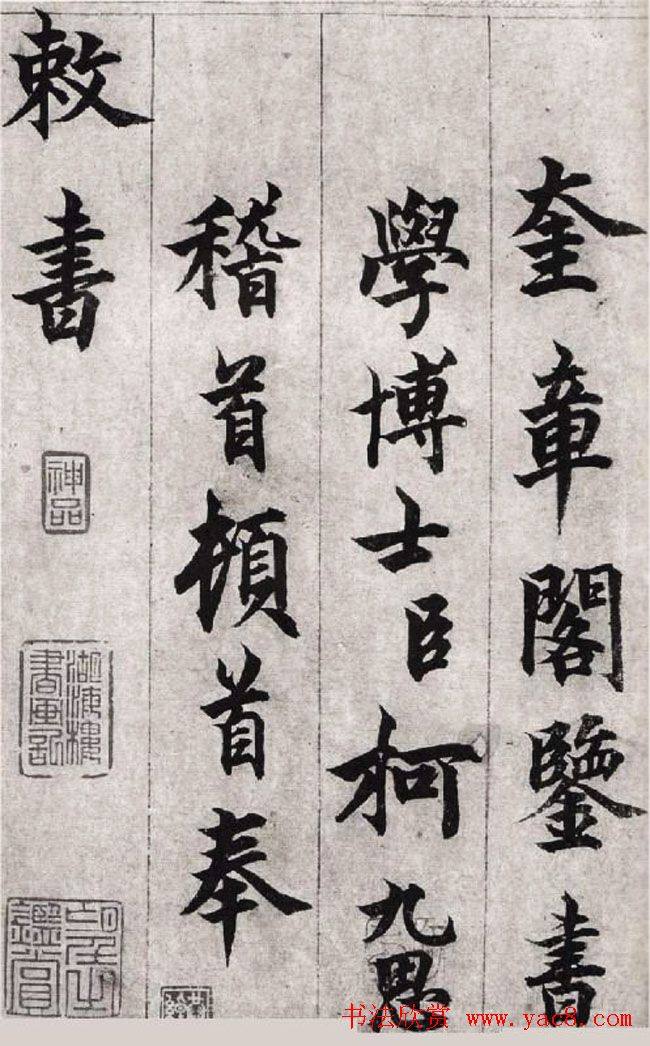 奎章閣鑒書
學博士臣柯九思
稽首頓首奉
敕書
神品
湖海樓
書画記
鑑賞
书法欣赏 www.yac8.com